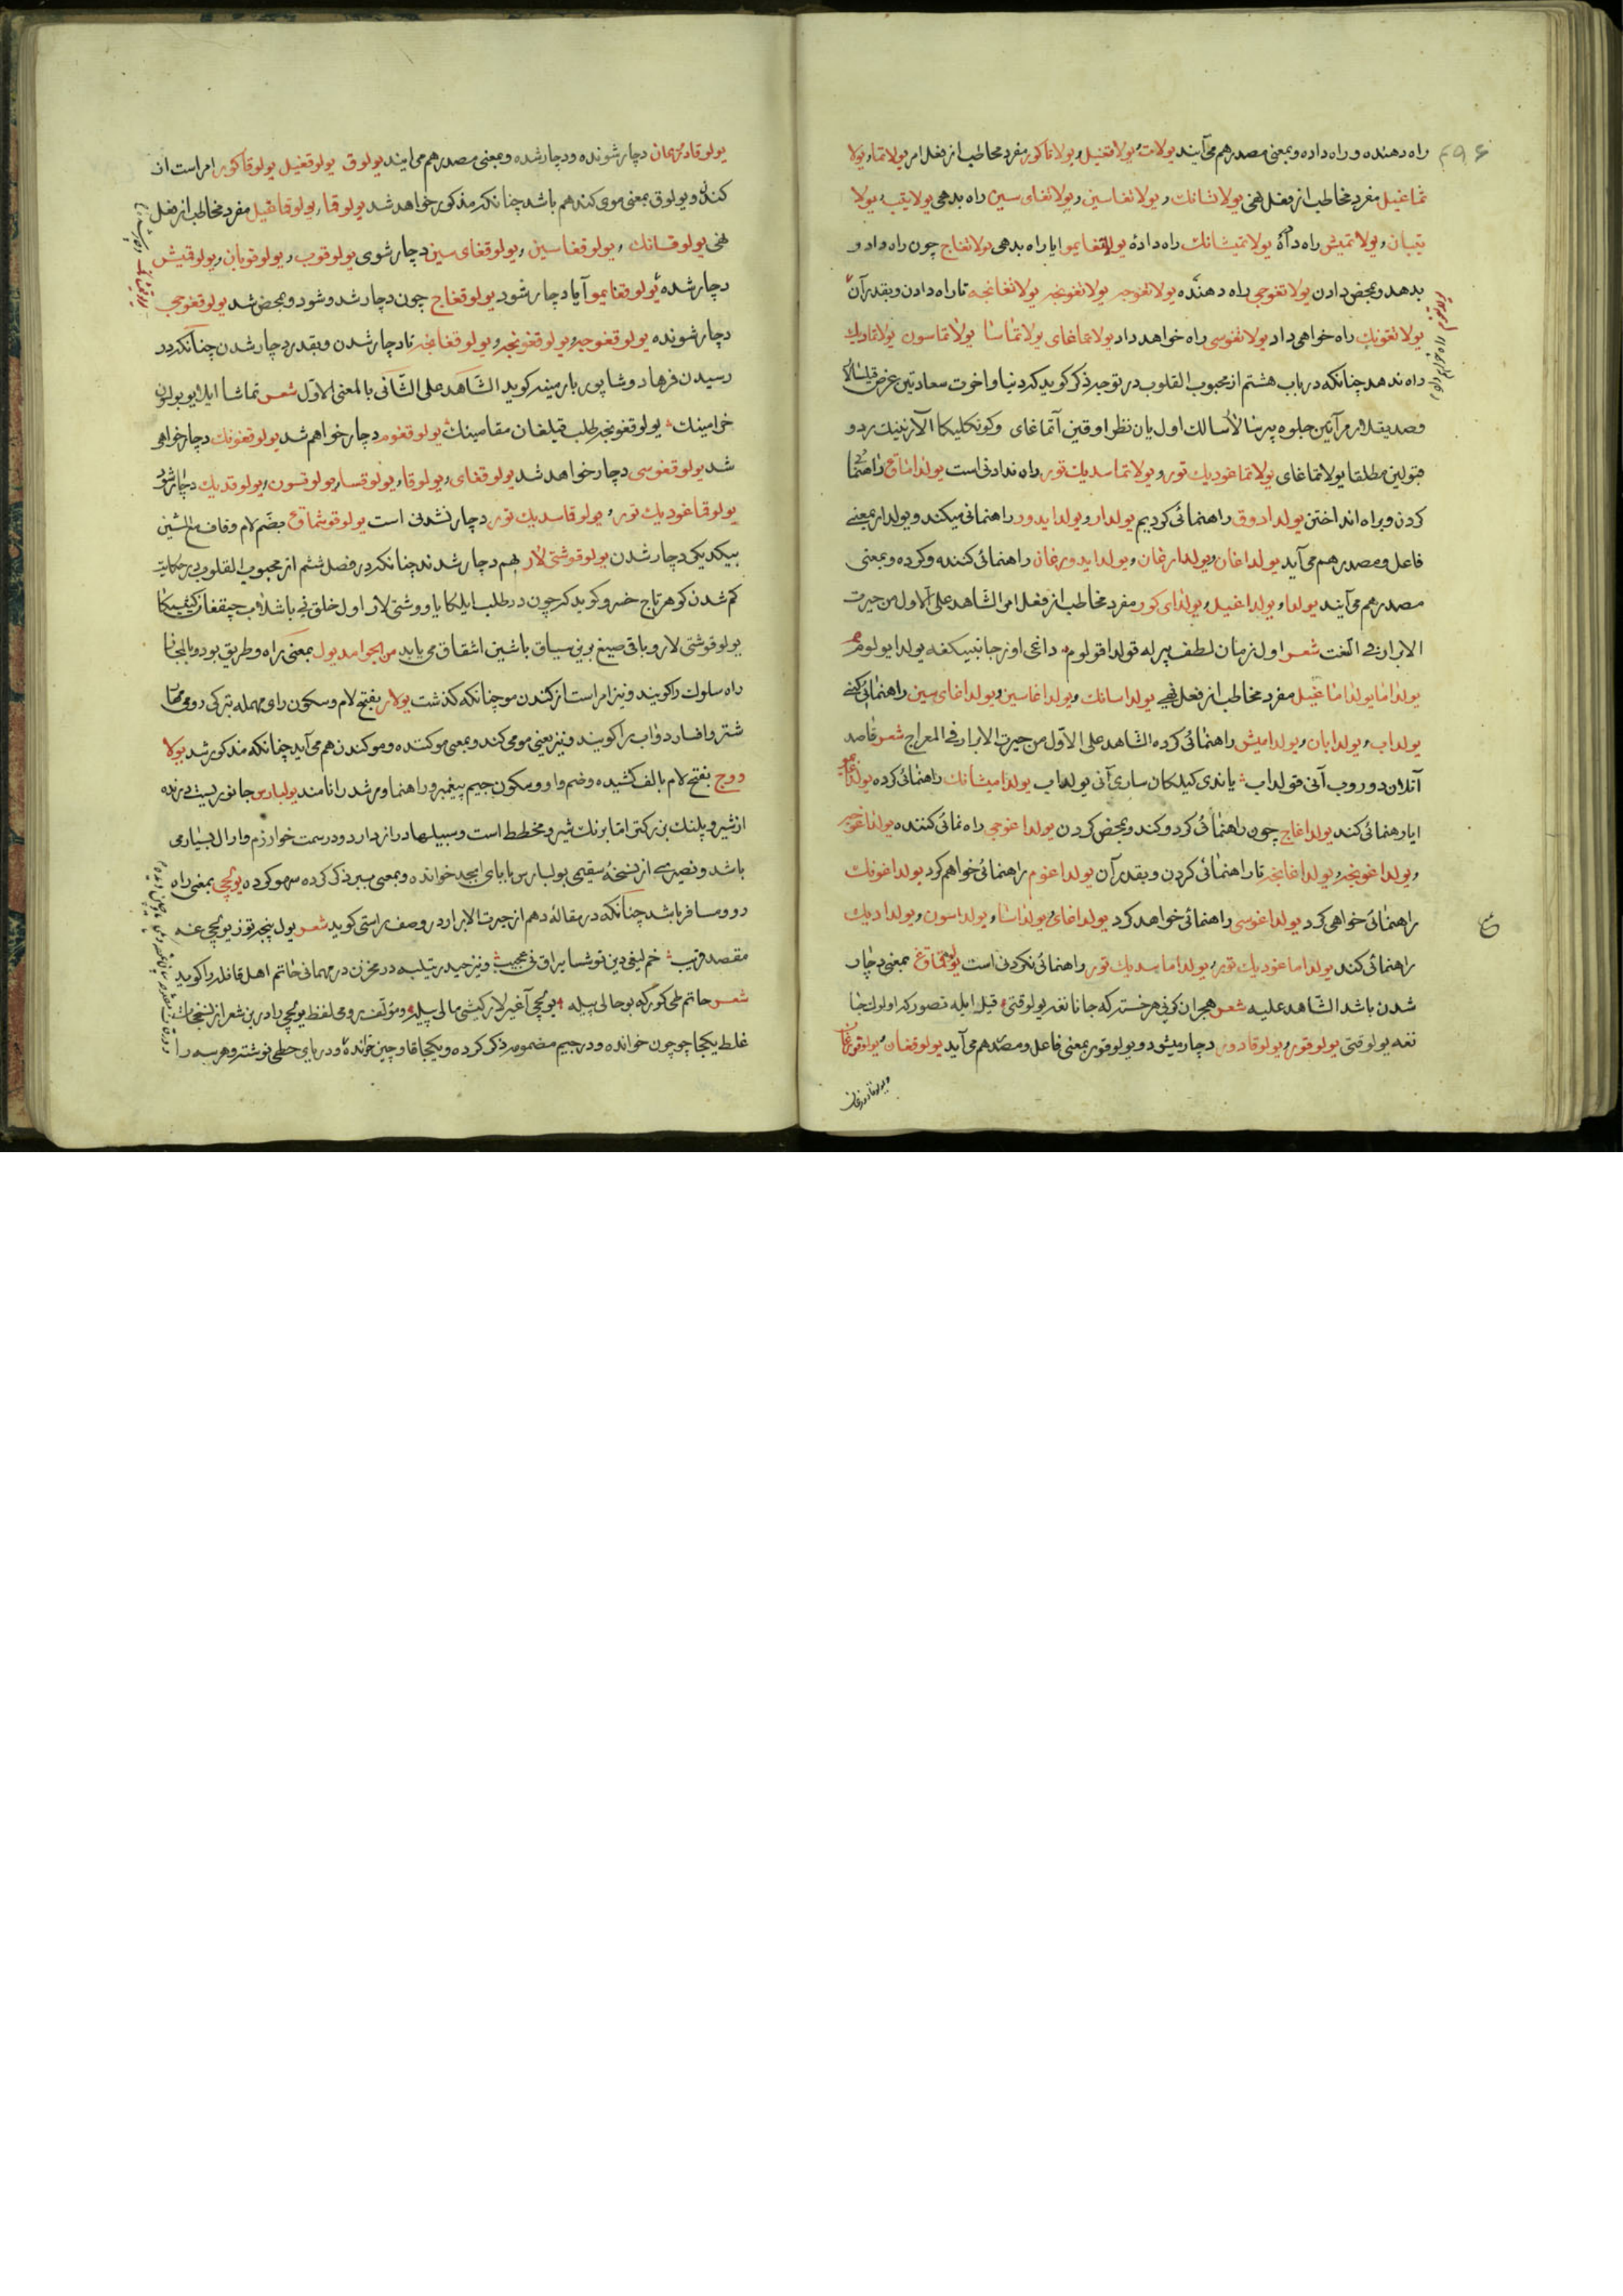 ۴۹۶
راه دهنده و راه داده و بمعنی مصدر هم می‌آیند یولات و یولاتغیل و یولاتاکور مفرد مخاطب از فعل امر یولاتما و یولا
تماغیل مفرد مخاطب از فعل نهی یولاتسانك و یولاتغاسین و یولاتغای سین راه بدهی یولایتب و یولا
یتبان و یولاتمیش راه داده یولاتمیشانك راه دادهٔ یولاتغایمو ایا راه بدهی یولاتغاج چون راه داد و
بدهد و بمحض دادن یولاتغوجی راه دهنده یولاتغوجه یولاتغونجه یولاتغانجه تا راه دادن و بقدر آن
یولاتغونك راه خواهی داد یولاتغوسی راه خواهد داد یولاتماغای یولاتماسا یولاتماسون یولاتمادیك
راه ندهد چنانکه در باب هشتم از محبوب القلوب در توجه ذکر کوید که دنیا و اخوت سعادتین عرض قیلسالار
و صد یقدا برم آنین جلوه بیرسالار سالك اول یان نظر اوقین آتماغای و کونکلیکا آلارنینك رد و
قبولین مطلقا یولاتماغای یولاتماغودیك تور و یولاتماسدیك تور راه ندادنی است یولداماق راهنمائی
کردن و براه انداختن یولدادوق راهنمائی کردیم یولدار و یولدایدور راهنمائی میکند و یولدار بمعنی
فاعل و مصدر هم می‌آید یولداغان و یولدارغان و یولدایدورغان راهنمائی کننده و کرده و بمعنی
مصدر هم می‌آیند یولدا و یولداغیل و یولدای کور مفرد مخاطب از فعل امر الشاهد علی الاول من حیرت
الابرار فی النعت شعر اول زمان لطف بیرله قولداقولوم داغی اوز جانبیکفه یولدا یولوم
یولداما یولداماغیل مفرد مخاطب از فعل نهی یولداسانك و یولداغاسین و یولداغای سین راهنمائی کنی
یولداب و یولدابان و یولدامیش راهنمائی کرده الشاهد علی الاول من حیرت الابرار فی المعراج شعر قاصد
آتلان دوروب آنی قولداب یاندی کیلکان ساری آنی یولداب یولدامیشانك راهنمائی کرده یولداغایمو
ایا رهنمائی کند یولداغاج چون راهنمائی کرد و کند و بمحض کردن یولداغوجی راه نمائی کننده یولداغوجه
و یولداغونجه و یولداغانجه تا راهنمائی کردن و بقدر آن یولداغوم راهنمائی خواهم کرد یولداغونك
راهنمائی خواهی کرد یولداغوسی راهنمائی خواهد کرد یولداغای و یولداسا و یولداسون و یولدادیك
راهنمائی کند یولداماغودیك تور و یولداماسدیك تور راهنمائی نکردنی است یولوقماق بمعنی دچار
شدن باشد الشاهد علیه شعر هجران کونی هر خسته که جانانغه یولوقتی قیل ایله تصور که اولوك جا
نغه یولوقتی یولوقور و یولوقادور دچار میشود و یولوقور بمعنی فاعل و مصدر هم می‌آید یولوقغان و یولوقورغان
و یولوقادورغان
یولوقادورغان دچار شونده و دچار شده و بمعنی مصدر هم می‌ایند یولوق یولوقغیل یولوقاکور امر است از
کندن و یولوق بمعنی موی کنده هم باشد چنانکه مذکور خواهد شد یولوقما و یولوقماغیل مفرد مخاطب از فعل
نهی یولوقسانك و یولوقغاسین و یولوقغای سین دچار شوی یولوقوب و یولوقوبان و یولوقمیش
دچار شده یولوقغایمو آیا دچار شود یولوقغاج چون دچار شد و شود و بمحض شد یولوقغوجی
دچار شونده یولوقغوجه و یولوقغونجه و یولوقغانجه تا دچار شدن و بقدر دچار شدن چنانکه در
رسیدن فرهاد و شاپور بارمینه کوید الشاهد علی الثانی بالمعنی الاول شعر تماشا ایلدا یو بولون
خرامینك یولوقغونجه طلب قیلغان مقامینك یولوقغوم دچار خواهم شد یولوقغونك دچار خواهی
شد یولوقغوسی دچار خواهد شد یولوقغای و یولوقا و یولوقسا و یولوقسون و یولوقدیك دچار شود
یولوقماغودیك تور و یولوقماسدیك تور دچار نشدنی است یولوقوشماق بضم لام و قاف مع الشین
بیکدیکر دچار شدن یولوقوشتی لار بهم دچار شدند چنانکه در فصل ششم از محبوب القلوب در حکایت
کم شدن کوهر تاج خسرو کوید که چون در طلب ایلکا یاووشتی لار اول خلق نی باشلاب چیقغان کیشیکا
یولوقوشتی لار و باقی صیغ برین سیاق باشین اشقاق می‌یابد من الجوامد یول بمعنی راه و طریق بود و بالمجاز
راه سلوك را کویند و نیز امر است از کندن مو چنانکه کذشت یولار بفتح لام و سکون راء مهمله بترکی رومی مهار
شتر و افسار دواب را کویند و نیز یعنی مو می کند و بمعنی مو کننده و مو کندن هم می‌آید چنانکه مذکور شد یولا
ووج بفتح لام بالف کشیده و ضم واو و سکون جیم پیغمبر و راهنما و مرشد را نامند یولبارس جانوریست درنده
از شیر و پلنك بزرکتر اما برنك شیر و مخطط است و سبیلها دراز دارد و در سمت خوارزم و ارال بسیار می
باشد و نصیری از نسخهٔ سقیمی بولبارس با بای ابجد خوانده و بمعنی ببر ذکر کرده سهو کرده یولچی بمعنی راه
رو و مسافر باشد چنانکه در مقالهٔ دهم از حیرت الابرار در وصف راستی کوید شعر یول نیجه تور یولچی غه
مقصد قریب خم لیغی دین توشسا یراق نی عجیب و نیز حیدر تیلبه در مخزن در مهمانی حاتم اهل قافله را کوید
شعر حاتم طی کورکه بو حالی بیله یولچی آغیرلار کیشی مالی بیله و مؤلف رومی لفظ یولچی را در بن شعر از نسخهات
غلط یکجا چوچون خوانده و در جیم مضمومه ذکر کرده و یکجا قاوچین خوانده و در بای حطی نوشته و هر سه را